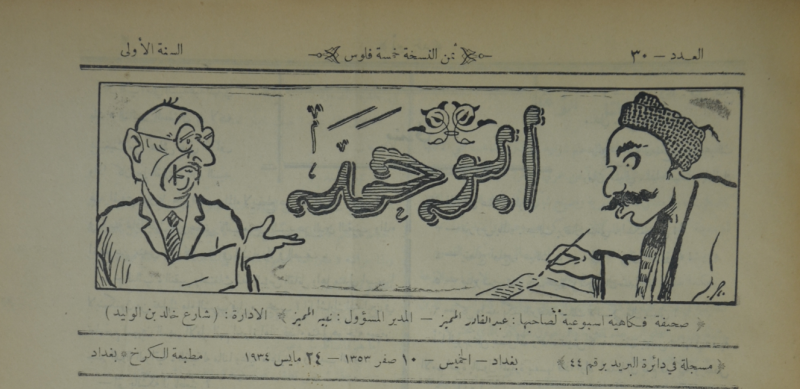 العدد - ٣٠ ثمن النسخة خمسة فلوس السنة الأولى
أبو حمد
صحيفة فكاهية اسبوعية لصاحبها : عبدالقادر المميز — المدير المسؤول : نبيه المميز الادارة : (شارع خالد بن الوليد)
مسجلة في دائرة البريد برقم ٤٤ بغداد — الخميس — ١٠ صفر ١٣٥٣ — ٢٤ مايس ١٩٣٤ مطبعة الكرخ * بغداد